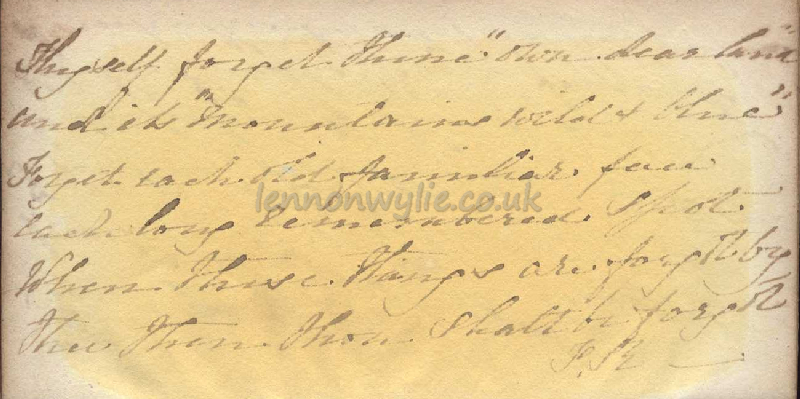 Thyself forget thine "own dear land"
and its "mountains wild & blue"
Forget each old familiar face
each long remembered spot
When these things are forgot by
thee then thou shalt be forgot
lennonwylie.co.uk